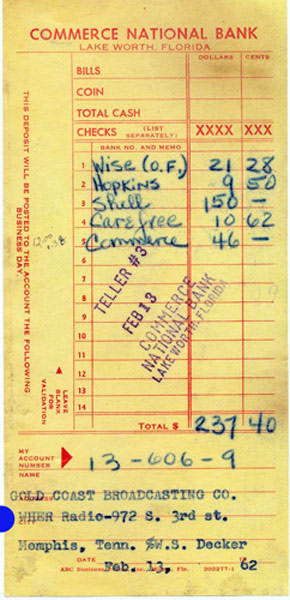 COMMERCE NATIONAL BANK
LAKE WORTH, FLORIDA
DOLLARS CENTS
BILLS
COIN
TOTAL CASH
CHECKS (LIST SEPARATELY) XXXX XXX
BANK NO. AND MEMO
1 Wise (O.F.) 21 28
2 Hopkins 9 50
3 Shell 150 —
4 Carefree 10 62
5 Commerce 46 —
6
7
8
9
10
11
12
13
14
TELLER #3
FEB 13
COMMERCE
NATIONAL BANK
LAKE WORTH, FLORIDA
THIS DEPOSIT WILL BE POSTED TO THE ACCOUNT THE FOLLOWING
BUSINESS DAY.
LEAVE
BLANK
FOR
VALIDATION
TOTAL $ 237 40
MY
ACCOUNT
NUMBER
13-606-9
GOLD COAST BROADCASTING CO.
WHER Radio-972 S. 3rd st.
CITY
Memphis, Tenn. %W.S. Decker
DATE Feb. 13, 19 62
ABC Business Fla. 202277-1